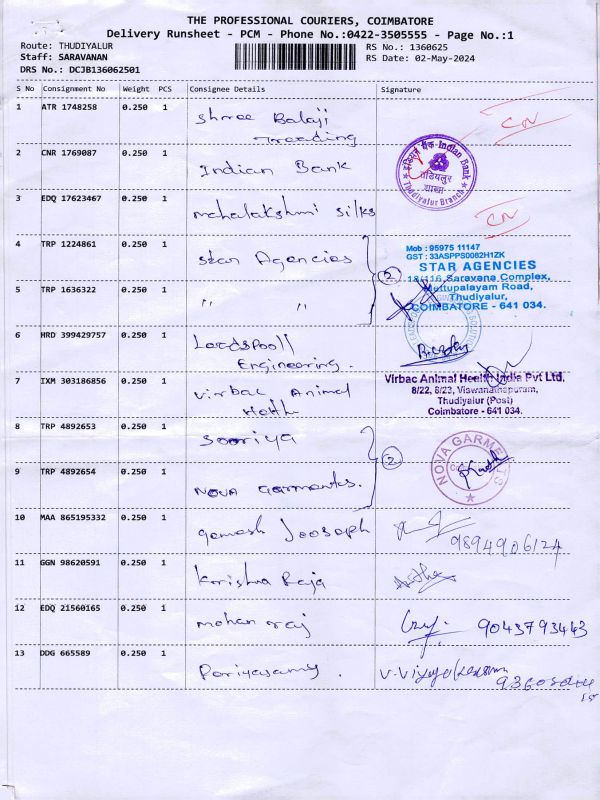 THE PROFESSIONAL COURIERS, COIMBATORE
Delivery Runsheet - PCM - Phone No.:0422-3505555 - Page No.:1
Route: THUDIYALUR
RS No.: 1360625
Staff: SARAVANAN
RS Date: 02-May-2024
DRS No.: DCJB136062501
S No Consignment No Weight PCS Consignee Details Signature
1 ATR 1748258 0.250 1 Shree Balaji
Treading
CN
2 CNR 1769087 0.250 1 Indian Bank
इंडियन बैंक Indian Bank
शाखा
Thudiyalur Branch
3 EDQ 17623467 0.250 1 mahalakshmi silks
CN
4 TRP 1224861 0.250 1 Star Agencies
2
Mob : 95975 11147
GST : 33ASPPS0082H1ZK
STAR AGENCIES
18/116, Saravana Complex,
Mettupalayam Road,
Thudiyalur,
COIMBATORE - 641 034.
5 TRP 1636322 0.250 1 " "
6 HRD 399429757 0.250 1
Engineering.
7 IXM 303186856 0.250 1 Virbac Animal
Virbac Animal Health India Pvt Ltd,
8/22, 8/23, Viswanathapuram,
Thudiyalur (Post)
Coimbatore - 641 034.
8 TRP 4892653 0.250 1 Sooriya
2
NOVA GARMENTS
9 TRP 4892654 0.250 1 NOVA Garments.
10 MAA 865195332 0.250 1 ganesh Joosaph
9894906124
11 GGN 98620591 0.250 1 Krishna Raja
12 EDQ 21560165 0.250 1 mohan raj
9043793443
13 DDG 665589 0.250 1 Pariyasamy .